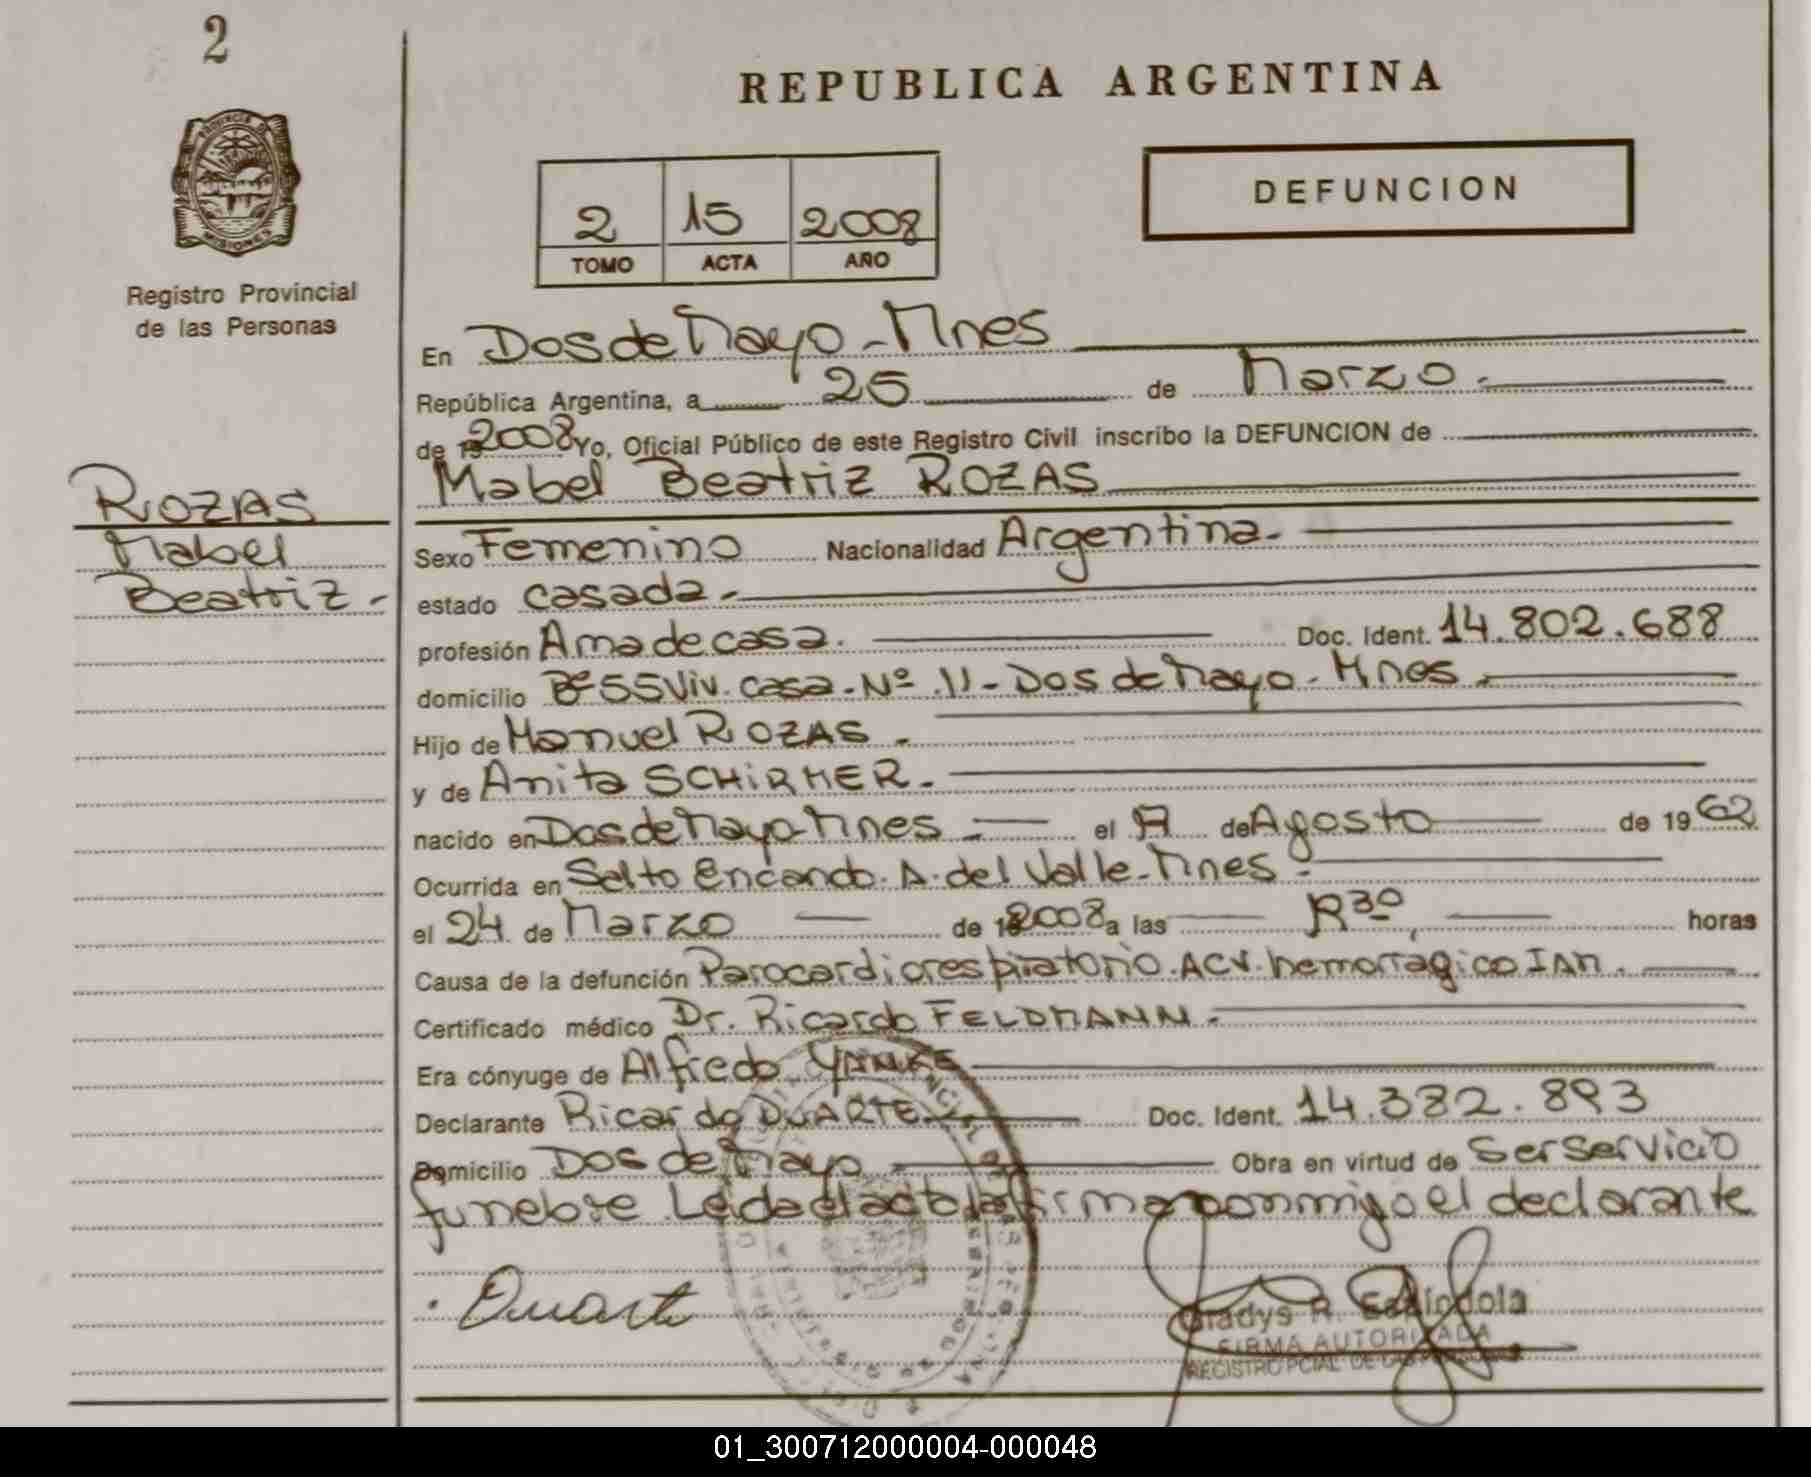 2
PROVINCIA DE
MISIONES
Registro Provincial
de las Personas
REPUBLICA ARGENTINA
2 15 2008
TOMO ACTA AÑO
DEFUNCION
En Dos de Mayo - Mnes
República Argentina, a 25 de Marzo.
de 19 2008 Yo, Oficial Público de este Registro Civil inscribo la DEFUNCION de
Mabel Beatriz ROZAS
ROZAS
Mabel
Beatriz.-
Sexo Femenino Nacionalidad Argentina.
estado casada.
profesión Ama de casa. Doc. Ident. 14.802.688
domicilio Bº 55 Viv. casa. Nº 11 - Dos de Mayo - Mnes.
Hijo de Manuel ROZAS.
y de Anita SCHIRMER.
nacido en Dos de Mayo - Mnes el de Agosto de 1962
Ocurrida en Salto Encando. A. del Valle - Mnes.
el 24 de Marzo de 19 2008 a las horas
Causa de la defunción Parocardiorespiratorio. ACV. hemorragico IAM.
Certificado médico Dr. Ricardo FELDMANN.
Era cónyuge de Alfredo YANKE
Declarante Ricardo DUARTE Doc. Ident. 14.332.893
Domicilio Dos de Mayo Obra en virtud de Ser servicio
funebre Leida el acta la firma con migo el declarante
Duarte
Gladys R. Espíndola
FIRMA AUTORIZADA
REGISTRO PCIAL. DE LAS PERSONAS
01_300712000004-000048